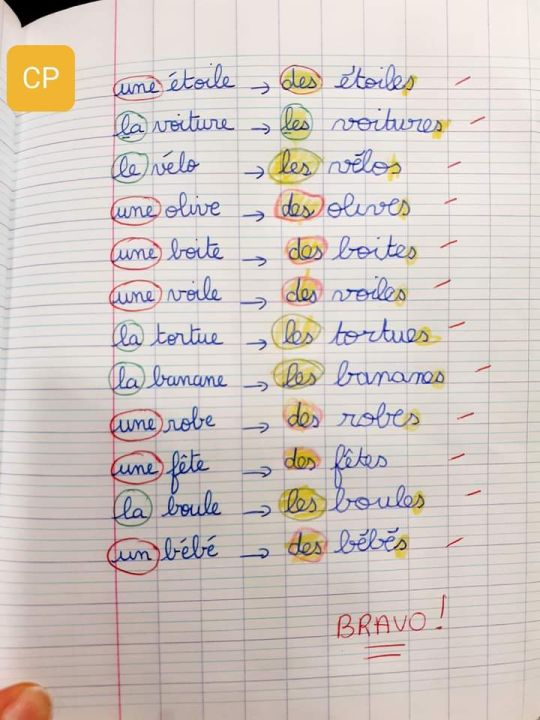 CP
une étoile → des étoiles
la voiture → les voitures
le vélo → les vélos
une olive → des olives
une boite → des boites
une voile → des voiles
la tortue → les tortues
la banane → les bananes
une robe → des robes
une fête → des fêtes
la boule → les boules
un bébé → des bébés
BRAVO!